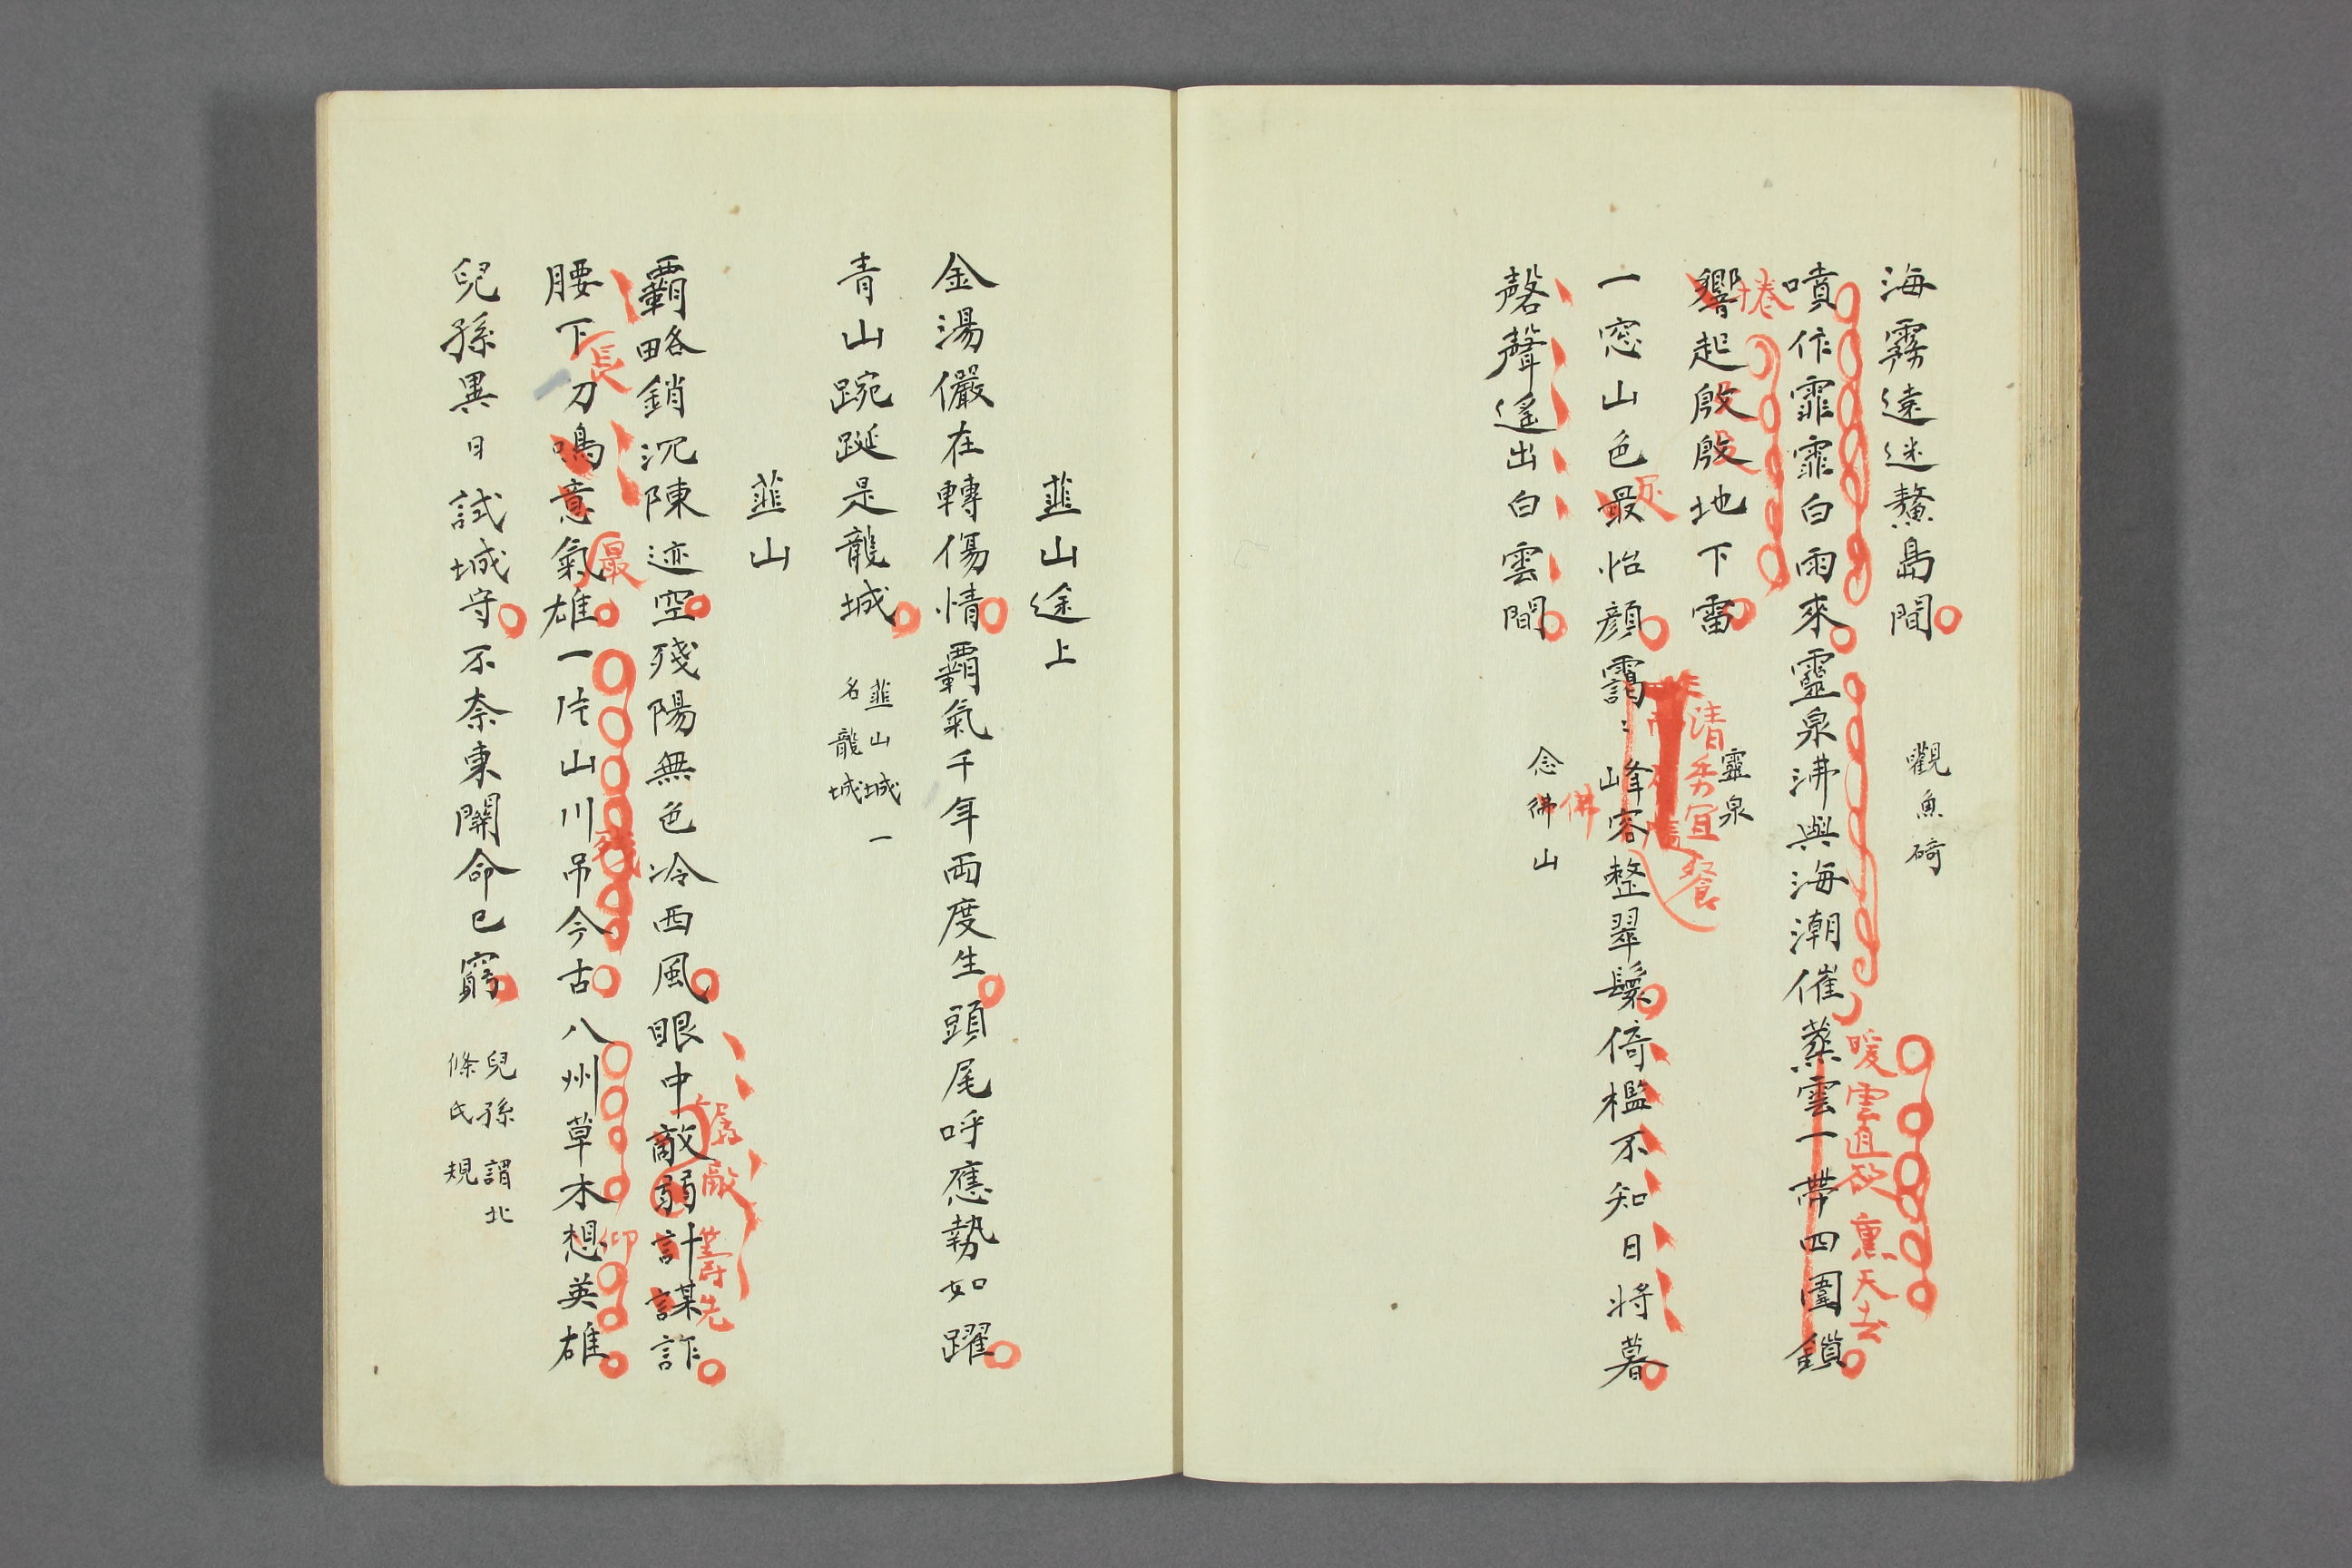 海霧遠迷鰲島間　觀魚碕
噴作霏霏白雨來靈泉沸與海潮催蒸雲一帶四圍鎖
暖雲直欲熏天去
響起殷殷地下雷　靈泉
捲
一窓山色最怡顔靄〻峰容整翠鬟倚檻不知日将暮
足
清秀宜餐
磬聲遥出白雲間　念彿山
佛
韮山途上
金湯儼在轉傷情覇氣千年両度生頭尾呼應勢如躍
青山踠跹是龍城　韮山城一
名龍城
韮山
覇略銷沉陳迹空残陽無色冷西風眼中敵弱計謀詐
孱敵籌先
腰下刀鳴意氣雄一片山川吊今古八州草木想英雄
長
最
残
仰
兒孫異日試城守不奈東關命已窮　兒孫謂北
條氏規